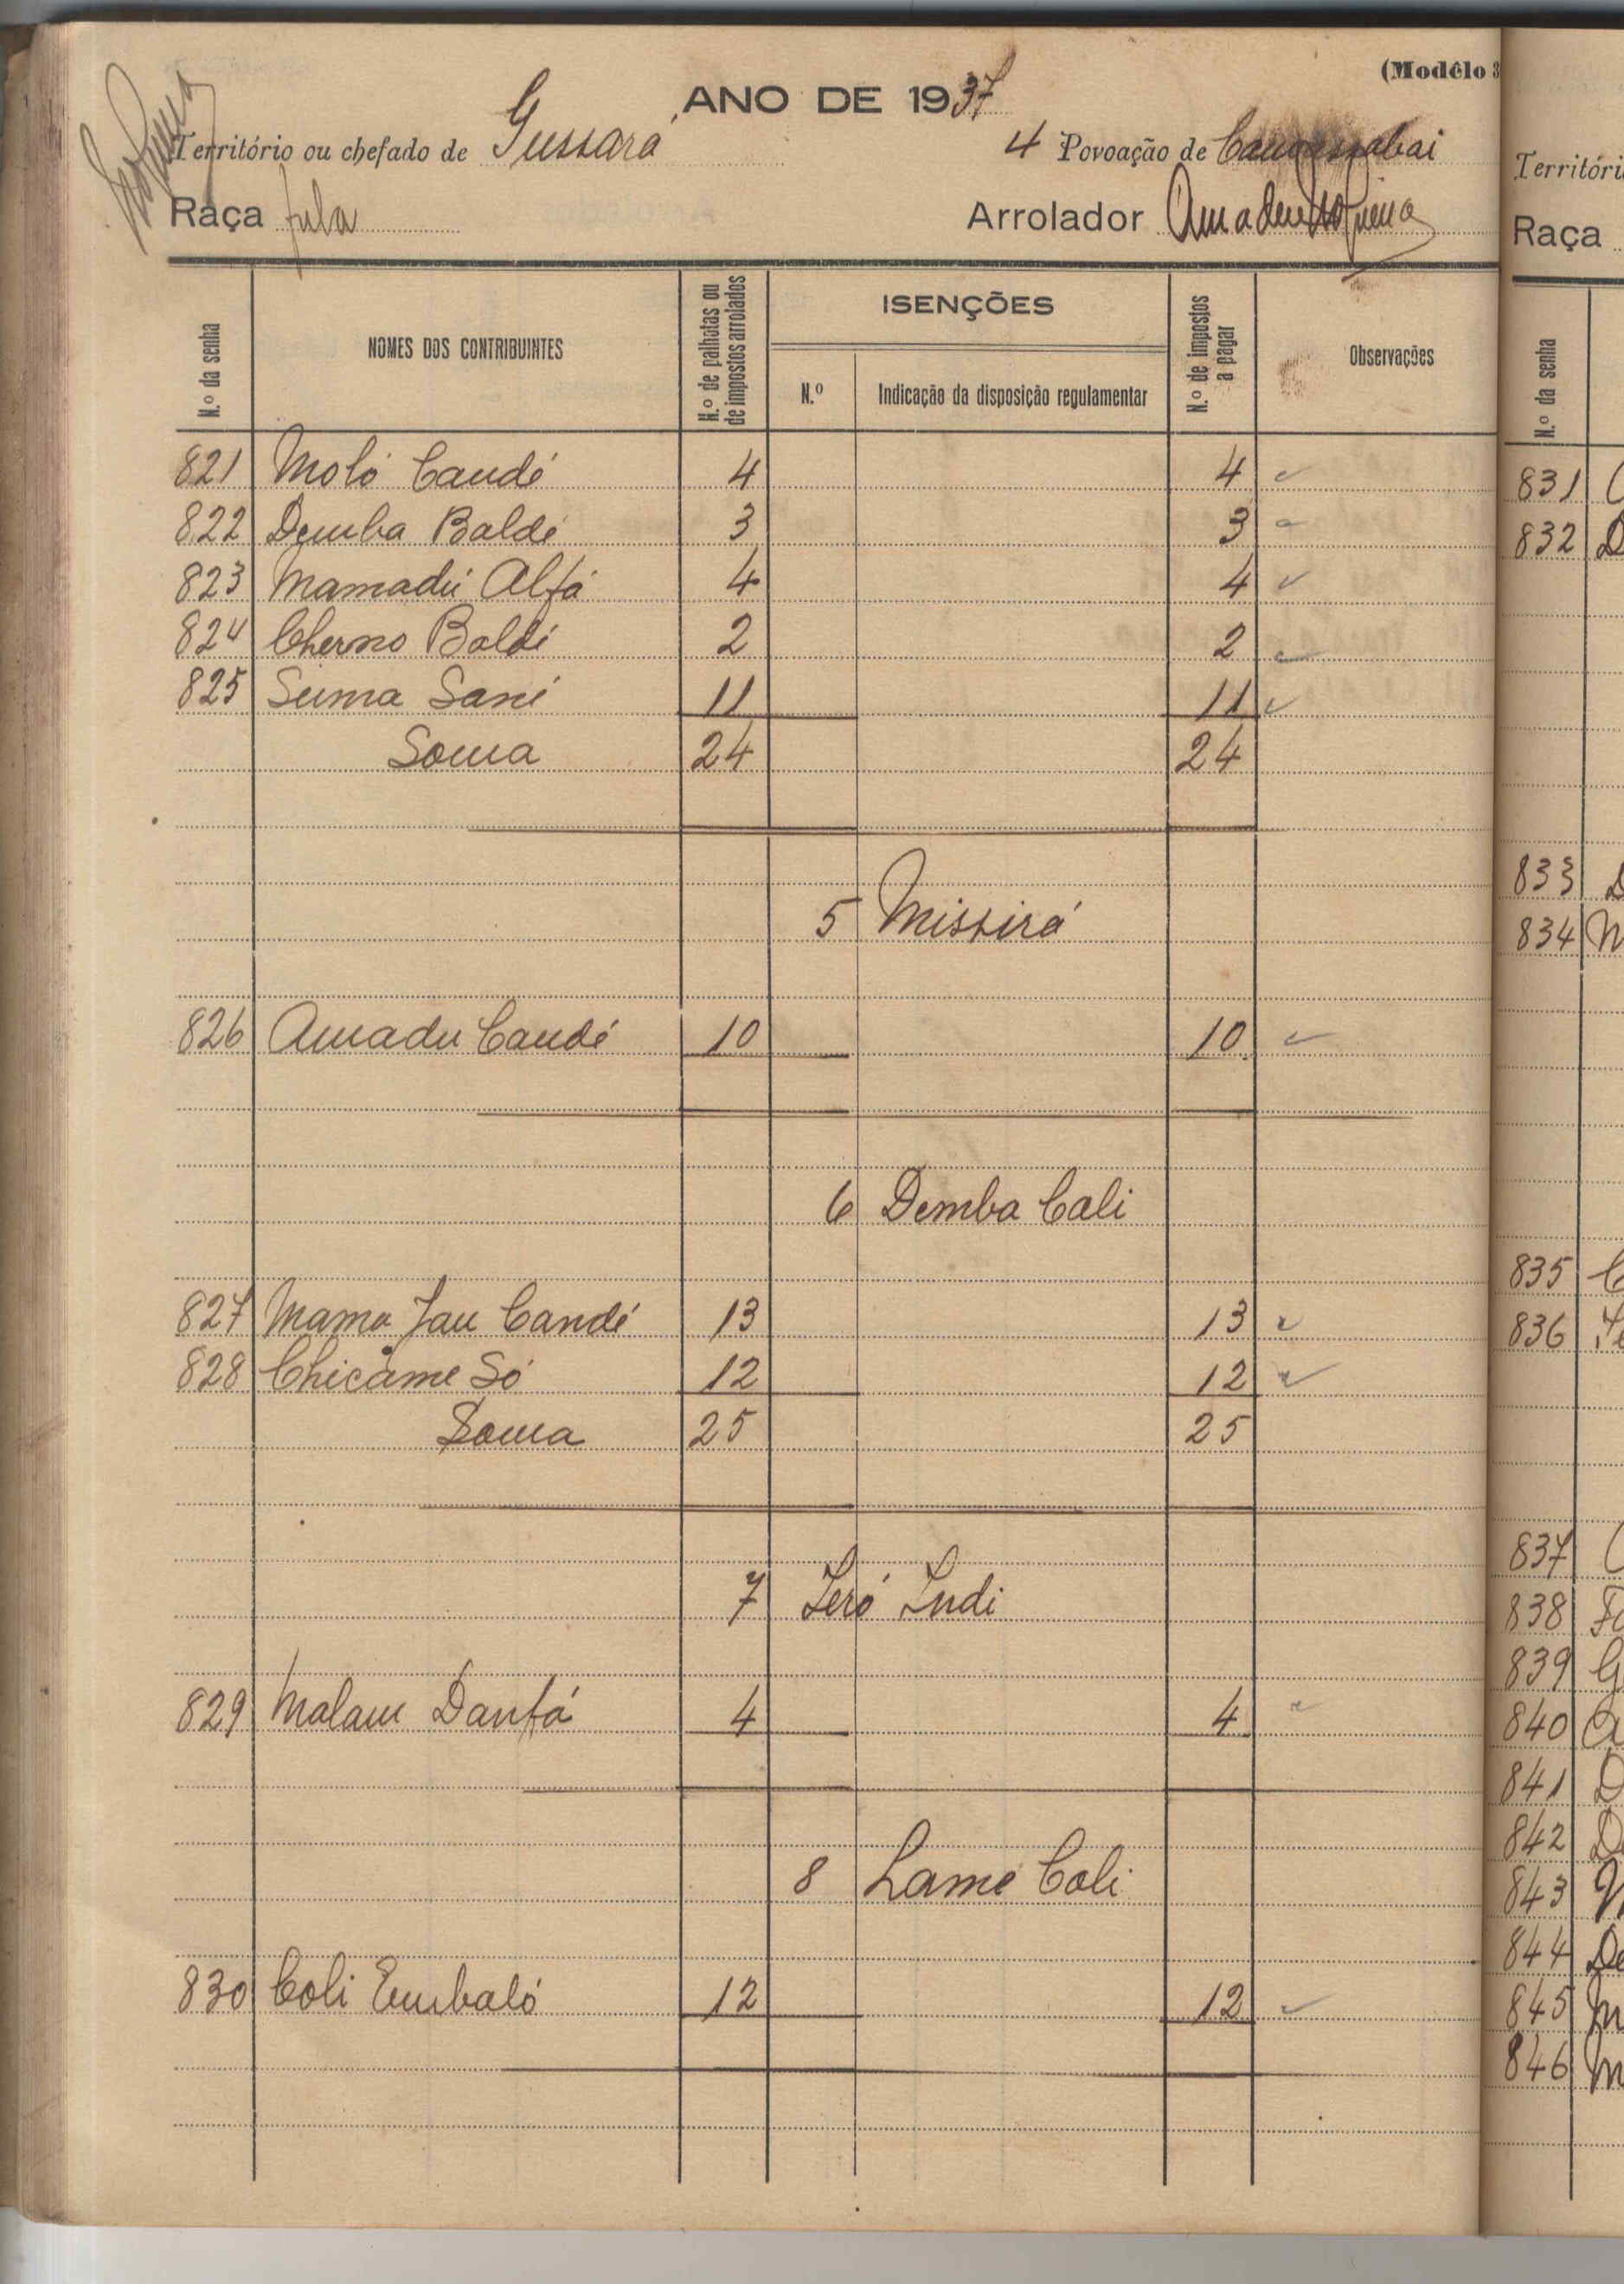 (Modêlo 3
ANO DE 1937
Território ou chefado de Gussará
4 Povoação de
Raça fula
Arrolador Amadeu Nogueira
N.º da senha
NOMES DOS CONTRIBUINTES
N.º de palhotas ou de impostos arrolados
ISENÇÕES
N.º
Indicação da disposição regulamentar
N.º de impostos a pagar
Observações
821 Moló Candé 4 4
822 Demba Baldé 3 3
823 Mamadú Alfá 4 4
824 Cherno Baldé 2 2
825 Suma Sané 11 11
Soma 24 24
5 Missirá
826 Amadu Candé 10 10
6 Demba Cali
827 Mama Jau Candé 13 13
828 Chicame Só 12 12
Soma 25 25
7 Seró Ludi
829 Malam Danfá 4 4
8 Lamé Coli
830 Coli Embaló 12 12
Territóri
Raça
N.º da senha
831
832 D
833 D
834 M
835 C
836
837
838 Fo
839 G
840 A
841 D
842 D
843 M
844 De
845 M
846 M